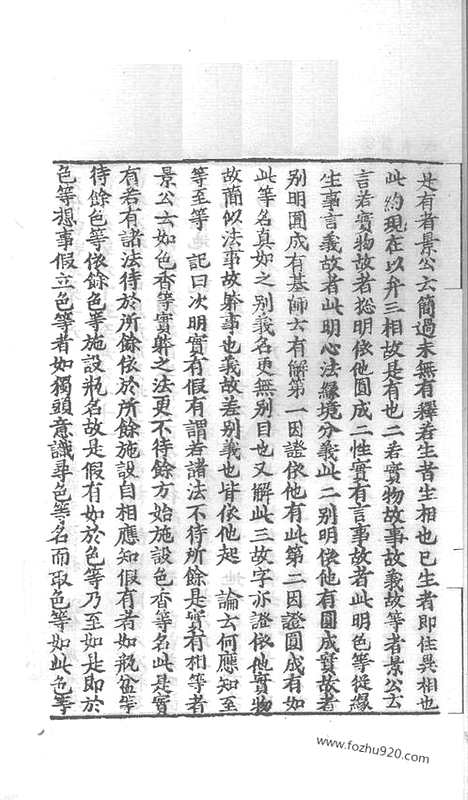 是有者景公云簡過未無有釋若生者生相也已生者即住異相也
此約現在以弁三相故是有也二若實物故事故義故等者景公云
言若實物故者総明依他圓成二性實有言事故者此明色等從緣
生事言義故者此明心法緣境分義此二別明依他有圓成實故者
別明圓成有基師云有解第一因證依他有此第二因證圓成有如
此等名真如之別義名更無別目也又解此三故字亦證依他實物
故簡似法事故躰事也義故差別義也皆依他起　論云何應知至
等至等　記曰次明實有假有謂若諸法不待所餘是實有相等者
景公云如色香等實躰之法更不待餘方始施設色香等名此是實
有若有諸法待於所餘依於所餘施設自相應知假有者如瓶盆等
待餘色等依餘色等施設瓶名故是假有如於色等乃至如是即於
色等想事假立色等者如獨頭意識尋色等名而取色等如此色等
www.fozhu920.com